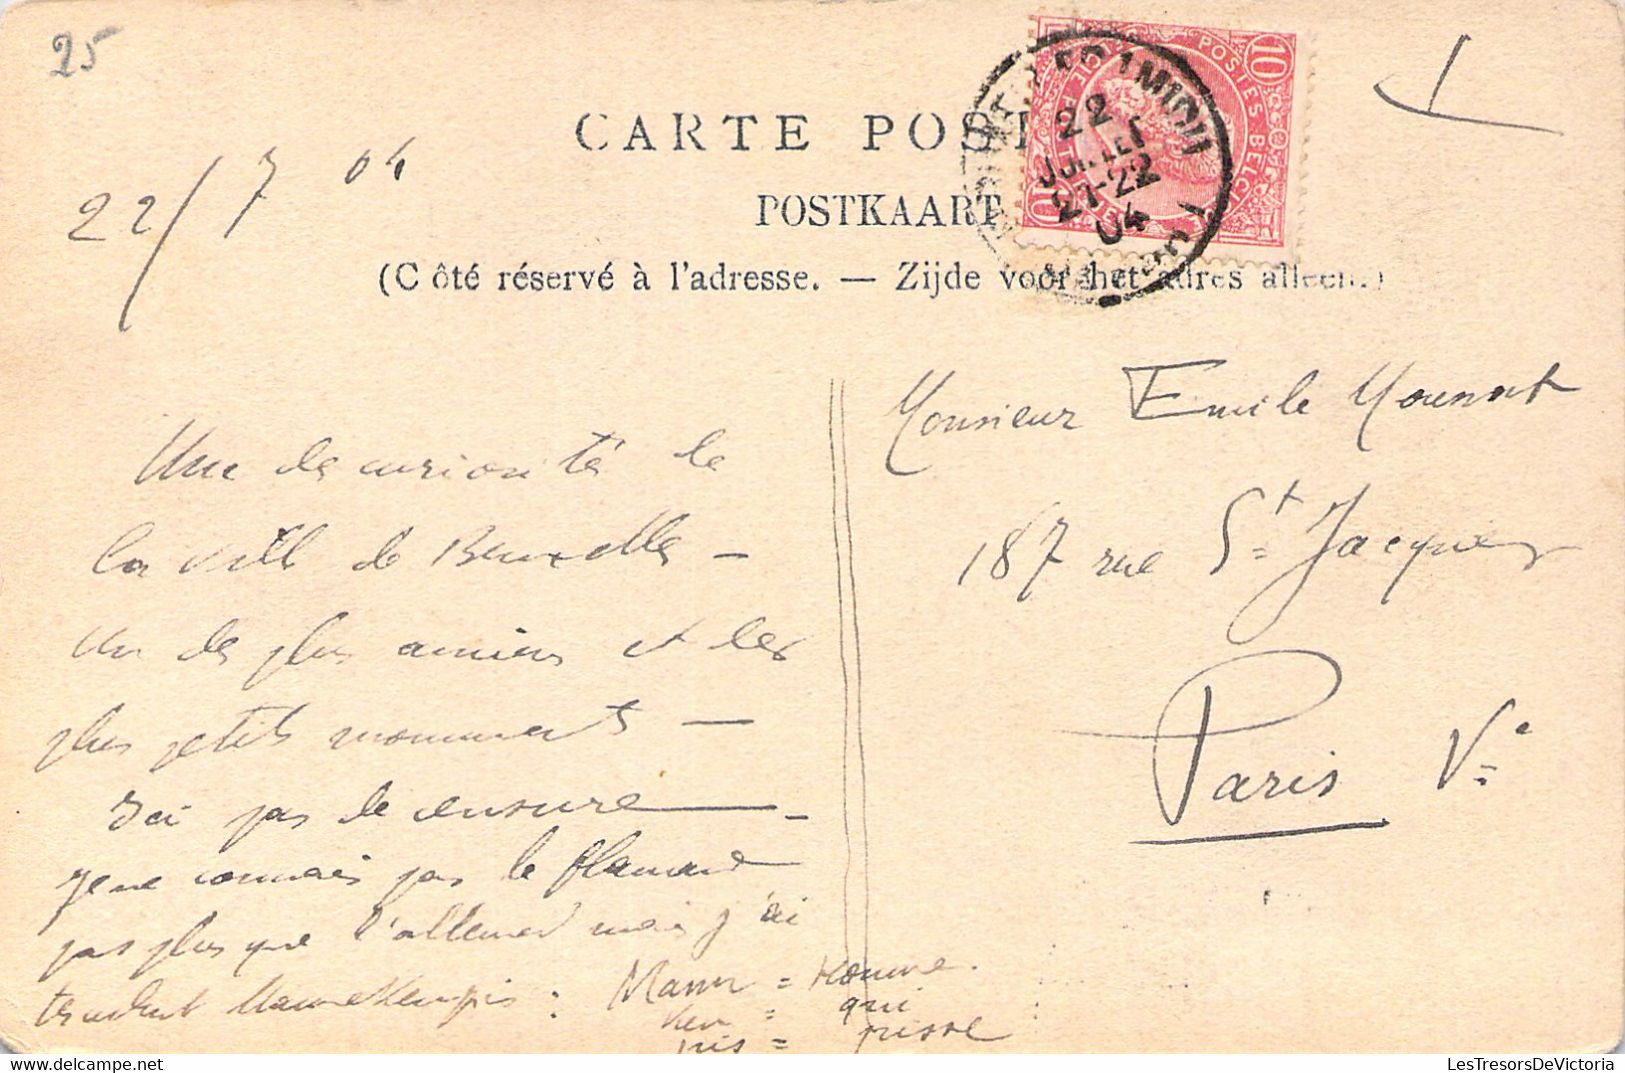 25
22/7 04
CARTE POST
POSTKAART
(Côté réservé à l'adresse. — Zijde voor het adres alleen.)
10 POSTES BELGIQUE 10
22
JUILLET
21-22
04
Monsieur Emile Mounot
187 rue St Jacques
Paris Ve
Une des curiosité de
la ville de Bruxelles —
un des plus anciens et les
plus petits monuments —
Ici pas de censure —
je ne connais pas le flamand
pas plus que l'allemand mais j'ai
traduit Mannekenpis : Mann = Homme.
ken = qui
pis = pisse
LesTresorsDeVictoria